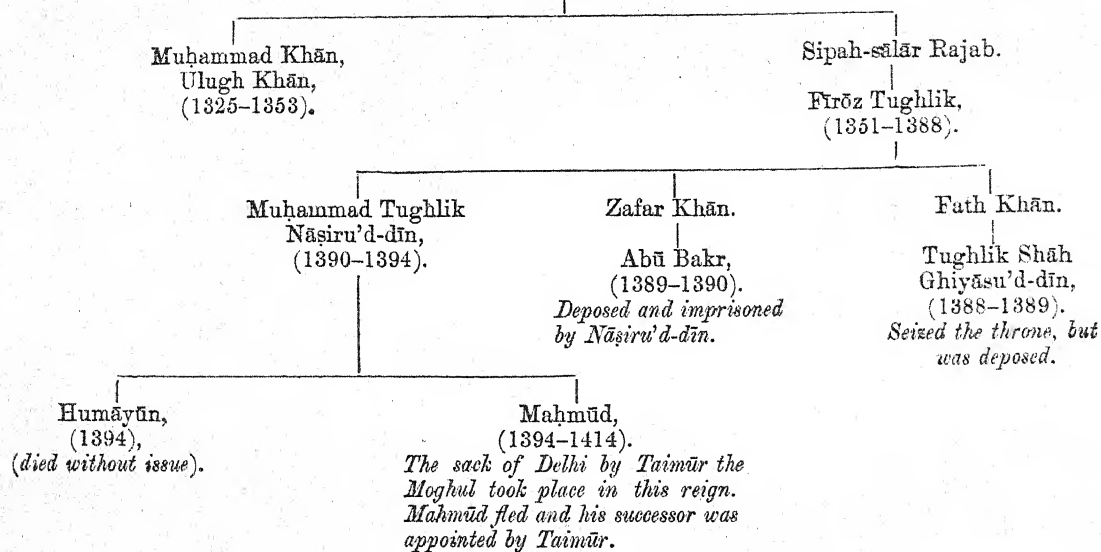 Muḥammad Khān,
Ulugh Khān,
(1325–1353).
Sipah-sālār Rajab.
Fīrōz Tughlik,
(1351–1388).
Muḥammad Tughlik
Nāṣiru’d-dīn,
(1390–1394).
Zafar Khān.
Abū Bakr,
(1389–1390).
Deposed and imprisoned
by Nāṣiru’d-dīn.
Fath Khān.
Tughlik Shāh
Ghiyāsu’d-dīn,
(1388–1389).
Seized the throne, but
was deposed.
Humāyūn,
(1394),
(died without issue).
Maḥmūd,
(1394–1414).
The sack of Delhi by Taimūr the
Moghul took place in this reign.
Maḥmūd fled and his successor was
appointed by Taimūr.